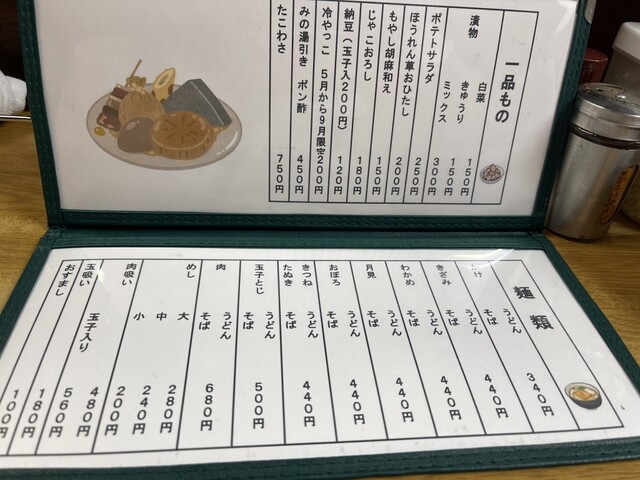 一品もの
漬物 白菜 150円
きゅうり 150円
ミックス 300円
ポテトサラダ 250円
ほうれん草おひたし 200円
もやし胡麻和え 150円
じゃこおろし 180円
納豆(玉子入200円) 120円
冷やっこ 5月から9月限定 200円
みの湯引き ポン酢 450円
たこわさ 750円
麺類
かけ うどん 340円
そば
きざみ うどん 440円
そば
わかめ うどん 440円
そば
月見 うどん 440円
そば
おぼろ うどん 440円
そば
きつね うどん 440円
たぬき そば
玉子とじ うどん 500円
そば
肉 うどん 680円
そば
めし 大 280円
中 240円
小 200円
肉吸い 480円
玉子入り 560円
玉吸い 180円
おすまし 100円